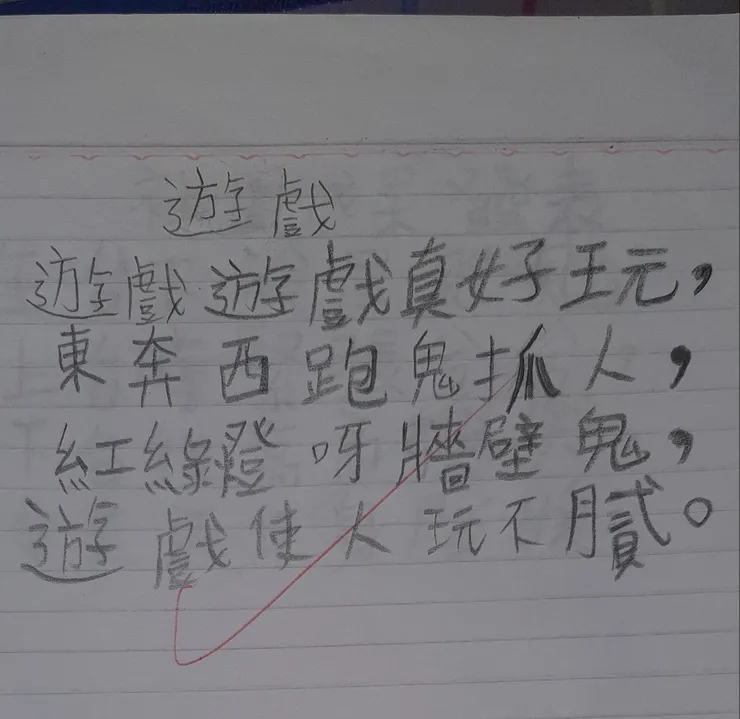 遊戲
遊戲遊戲真好玩,
東奔西跑鬼抓人,
紅綠燈呀牆壁鬼,
遊戲使人玩不膩。